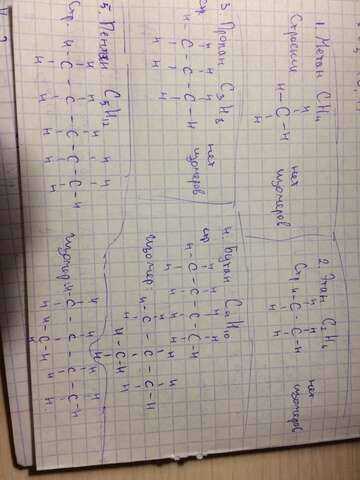 1. Метан CH4
Строение
H
H-C-H
H
нет
изомеров
2. Этан C2H4
Стр.
H H
H-C-C-H
H H
нет
изомеров
3. Пропан C3H8
Стр
H H H
H-C-C-C-H
H H H
нет
изомеров
4. Бутан C4H10
стр
H H H H
H-C-C-C-C-H
H H H H
Изомер:
H H H
H-C-C-C-H
H H
H-C-H
H
5. Пентан C5H12
Стр.
H H H H H
H-C-C-C-C-C-H
H H H H H
Изомер:
H H H H
H-C-C-C-C-H
H H H
H-C-H
H